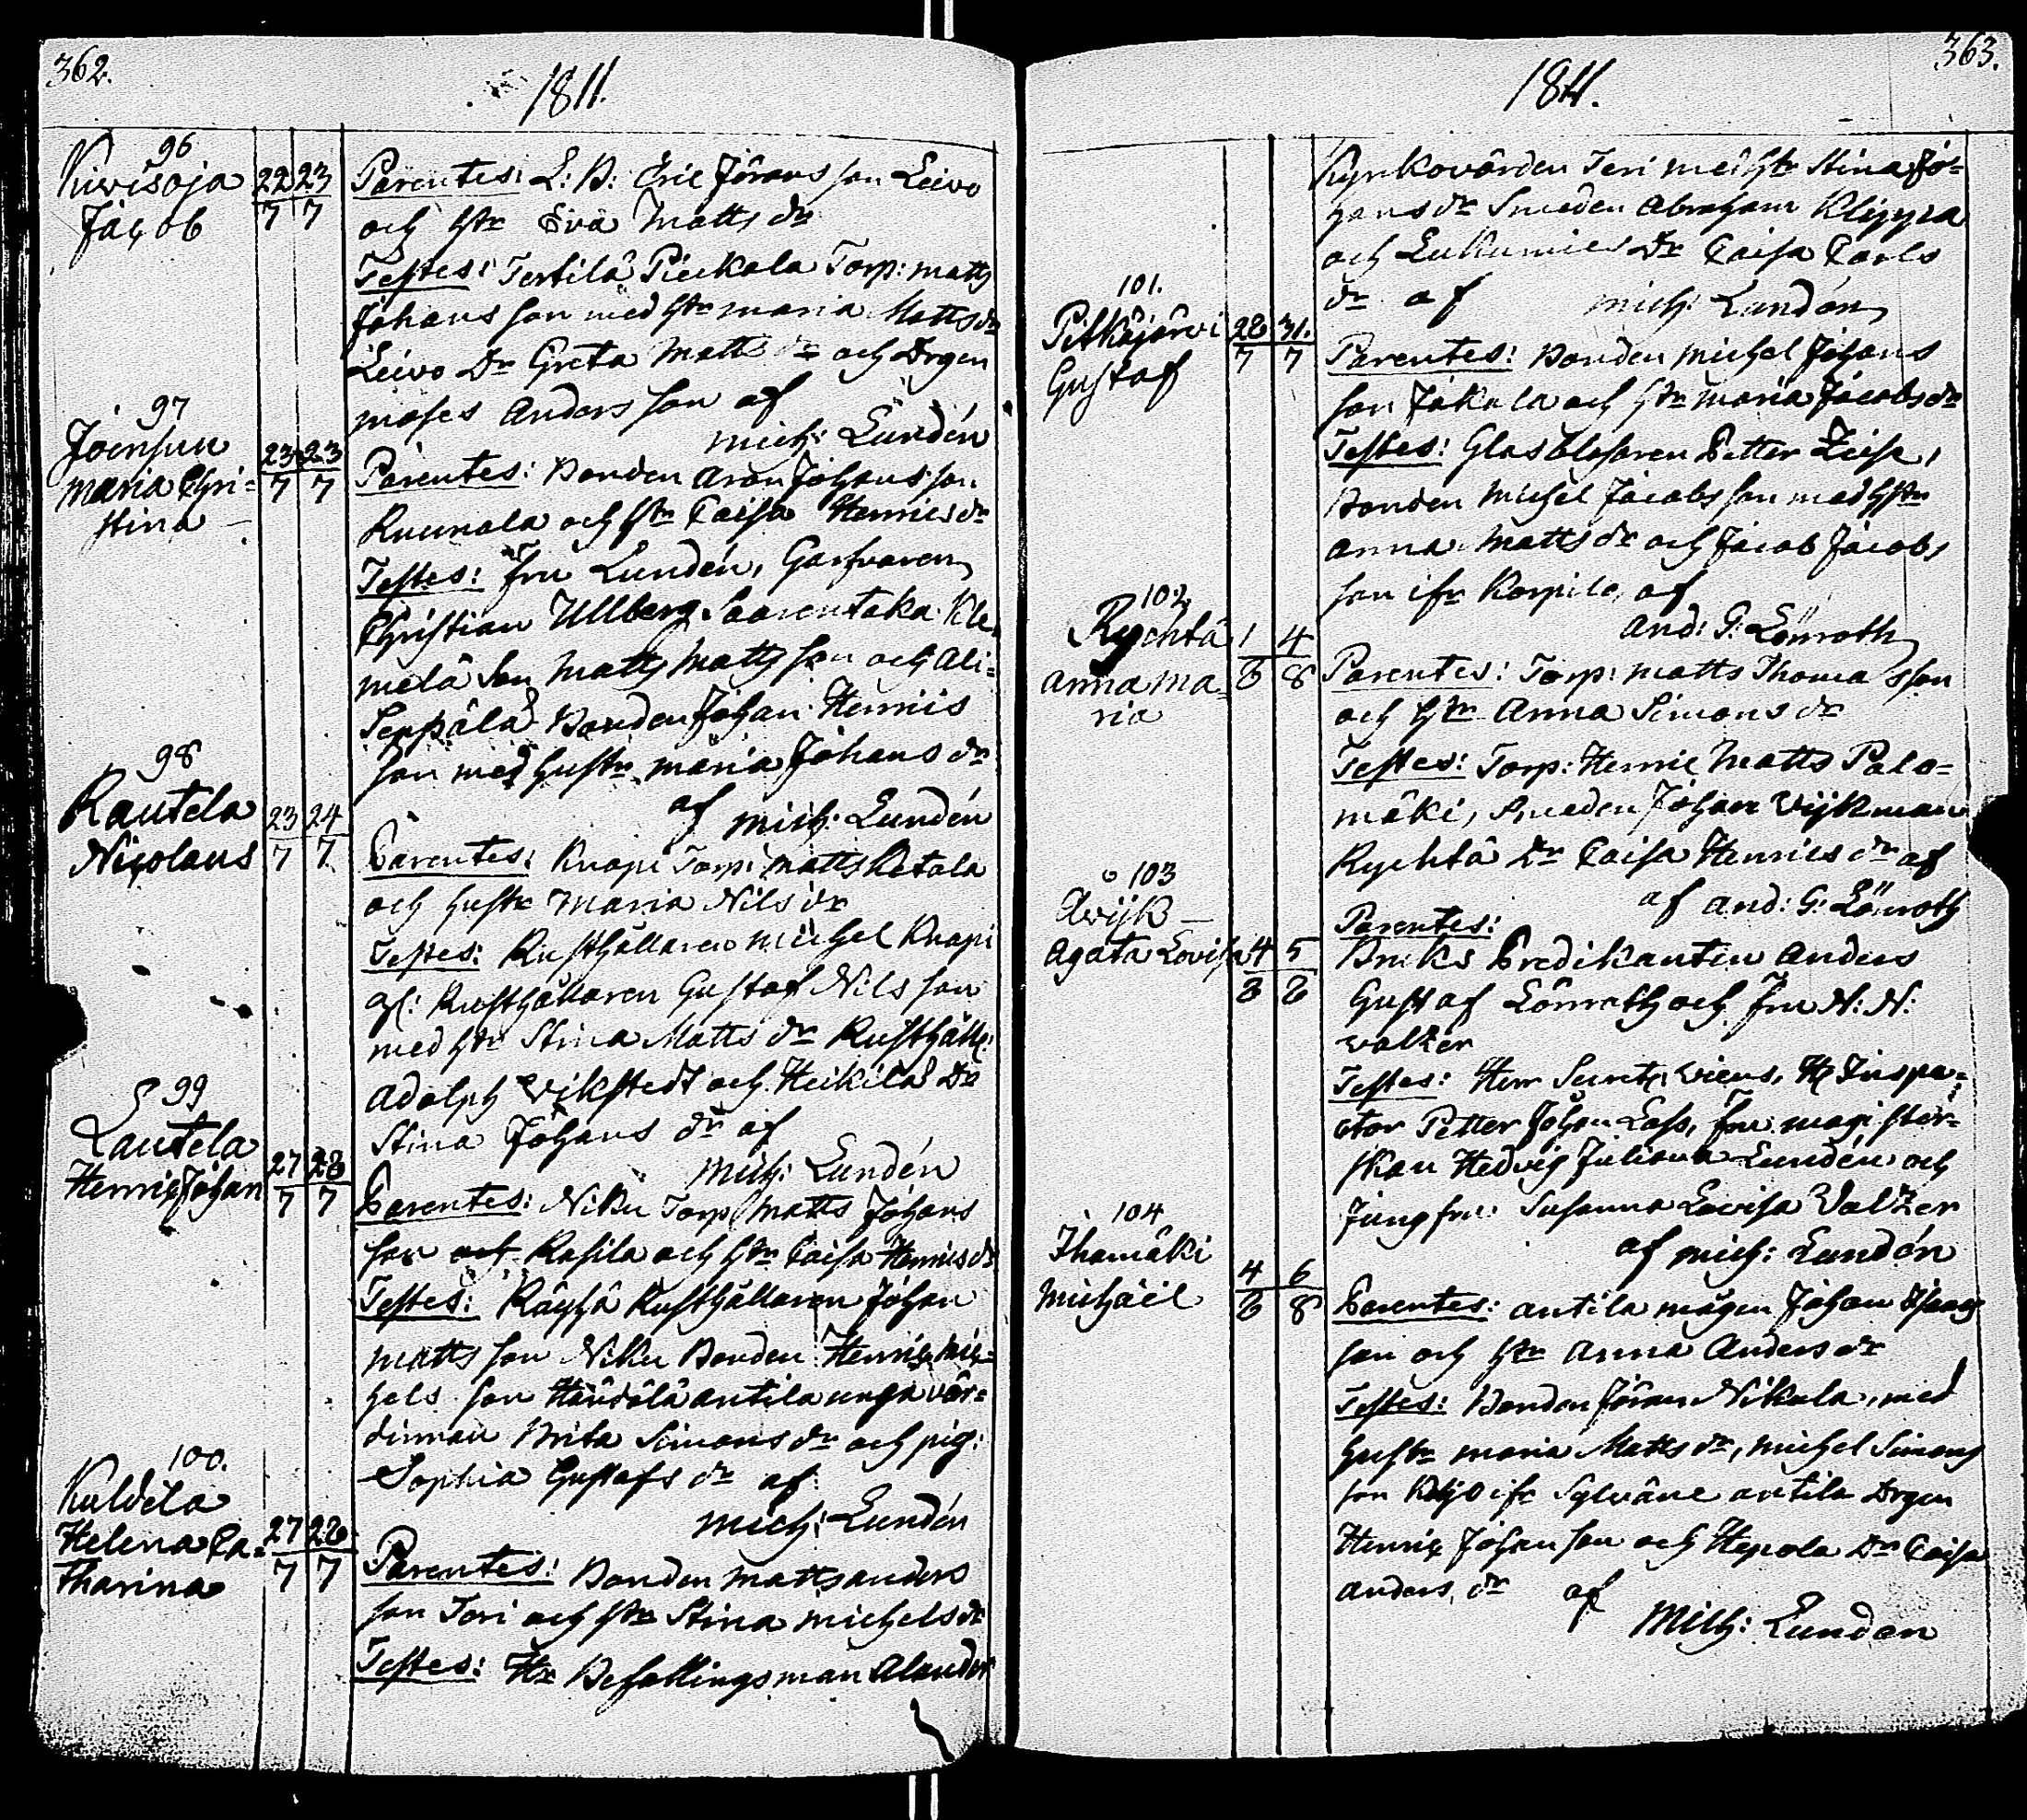 362.
1811.
96
Kivisoja
Jacob
22 23
7 7
Parentes: L: B: Eric Jörans son Leivo
och hstr Eva Matts dr
Testes: Tertilä Pieckala Torp: Matts
Johans son med hstr Maria Matts dr
Leivo Dr Greta Matts dr och Drgen
Moses Anders son af
Mich: Lundén
97
Joensuu
Maria Chri=
stina
23 23
7 7
Parentes: Bonden Aron Johans son
Ruunala och hstr Caisa Henrics dr
Testes: Fru Lundén, Garfvaren
Christian Ullberg Saarentaka Kle,
melä Son Matts Matts son och Ali=
Seppälä Bonden Johan Henrics
son med hustr Maria Johans dr
af Mich: Lundén
98
Rautela
Nicolaus
23 24
7 7
Parentes: Knapi Torp: Matts Ketola
och hustr Maria Nils dr
Testes: Rusthållaren Michel Knapi
gl: Rusthållaren Gustaf Nils son
med hstr Stina Matts dr Rusthåll:
Adolph Vikstedt och Heikilä Dr
Stina Johans dr af
Mich: Lundén
99
Lautela
Henric Johan
27 28
7 7
Parentes: Niku Torp Matts Johans
son och Rasila och hstr Caisa Henrics dr
Testes: Räyhä Rusthållaren Johan
Matts son Niku Bonden Henric Mic=
hels son Händälä Antila unga vär=
dinnan Brita Simons dr och pig:
Sophia Gustafs dr af
Mich: Lundén
100.
Kuldela
Helena Ca=
tharina
27 28
7 7
Parentes: Bonden Matts Anders
son Teri och hstr Stina Michels dr
Testes: Hr Befallingsman Alander
363.
1811.
Kyrkovärden Teri med hstr Stina Jo=
hans dr Smeden Abraham Klippa
och Dr Caisa Carls
dr af Mich: Lundén
101.
Pitkäjärvi
Gustaf
28 31.
7 7
Parentes: Bonden Michel Johans
son Jakala och hstr Maria Jacobs dr
Testes: Glasblasaren Petter Zeise,
Bonden Michel Jacobs son med hstr
Anna Matts dr och Jacob Jacobs
son ifr Korpila, af
And: G: Lönroth
102.
Rychtä
Anna Ma=
ria
1 4
8 8
Parentes: Torp: Matts Thoma sson
och hstr Anna Simons dr
Testes: Torp: Henric Matts Palo=
mäki, Smeden Johan Vijkman
Rychtä Dr Caisa Henrics dr af
af And: G: Lönroth
103
Avijk
Agata Lovisa
4 5
8 8
Parentes:
Bruks Predikanten Anders
Gustaf Lönroth och Fru N: N:
Walzer
Testes: Herr Secret: Wiens, H: Inspe=
ctor Petter Johan Lass, Fru Magister=
skan Hedvig Juliana Lundén och
Jungfru: Susanna Lovisa Walzer
af Mich: Lundén
104
Ihamäki
Michaël
4 6
8 8
Parentes: Antila mågen Johan Isaacs
son och hstr Anna Anders dr
Testes: Bonden Jöran Nikula, med
hustr Maria Matts dr, Michel Simons
son ifr Sylväne Antila Drgen
Henric Johan son och Hepola Dr Caisa
Anders dr af
Mich: Lunden